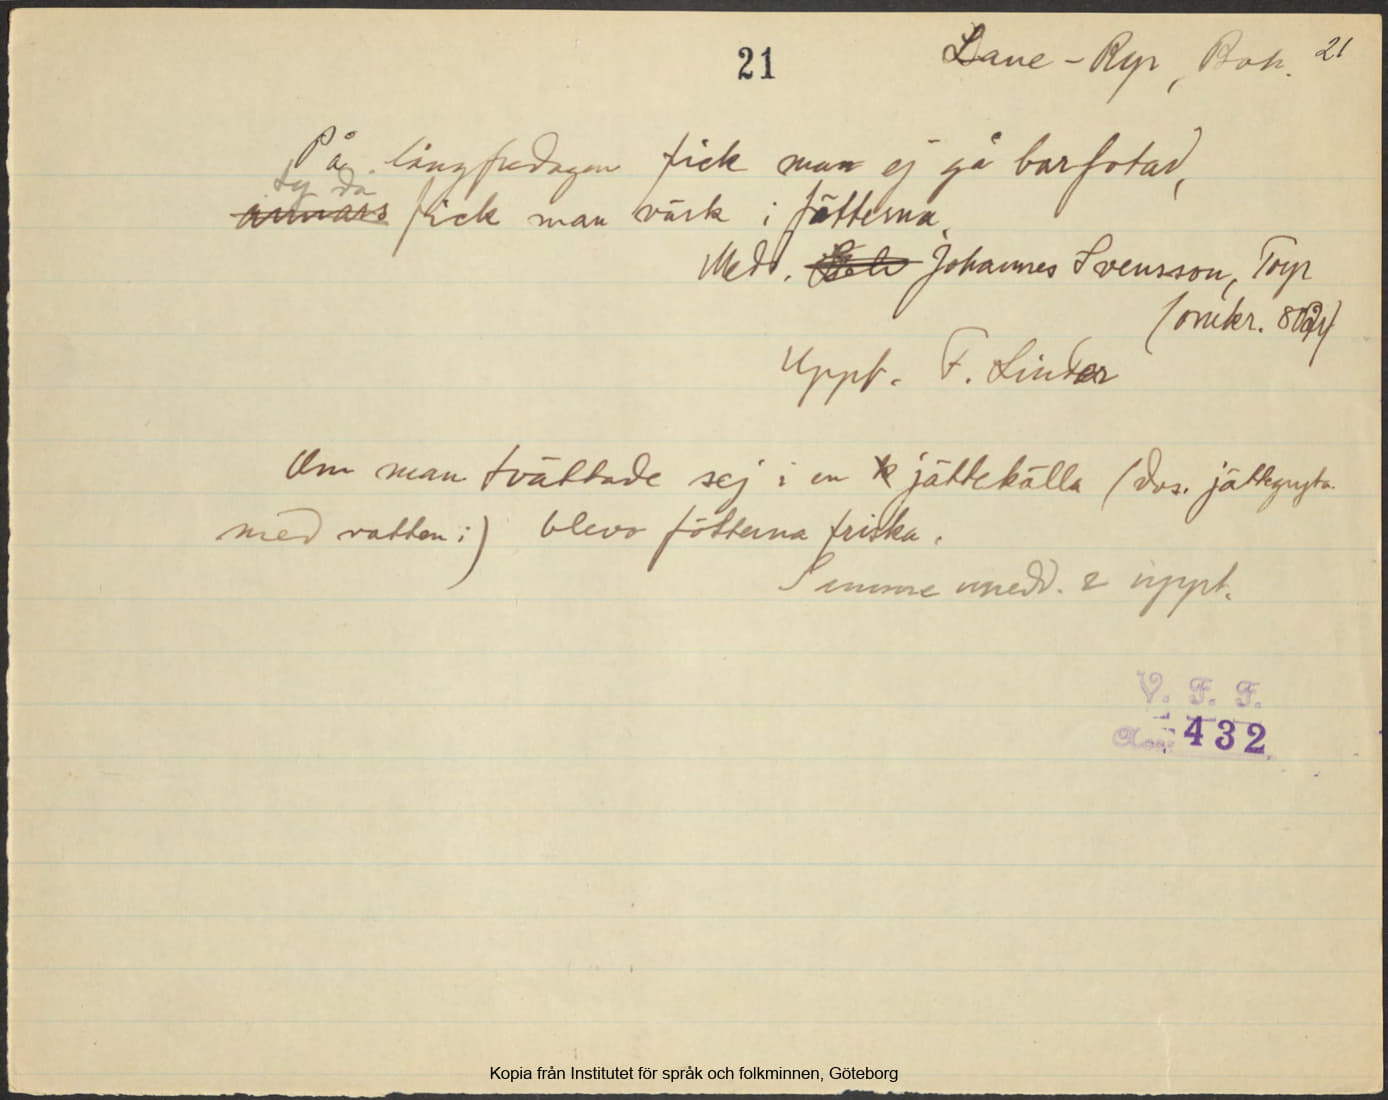 21
Lane-Ryr, Boh. 21
På långfredagen fick man ej gå barfotad,
ty då
annars fick man värk i fötterna.
Medd. Johannes Svensson, Toyr
(omkr. 80 år)
Uppt. F. Linder
Om man tvättade sej i en jättekälla (dvs. jättegryta
med vatten i) blevo fötterna friska.
Samme medd. & uppt.
V. F. F.
Acc. 432
Kopia från Institutet för språk och folkminnen, Göteborg